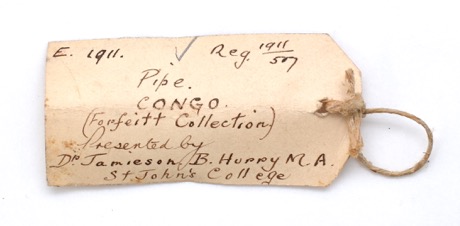 E. 1911. ✓ Reg. 1911/57
Pipe.
CONGO.
(Forfeitt Collection)
Presented by
Dr Jamieson, B. Hurry M.A.
St John's College